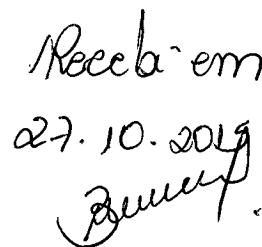 Recebi em
27.10.2019